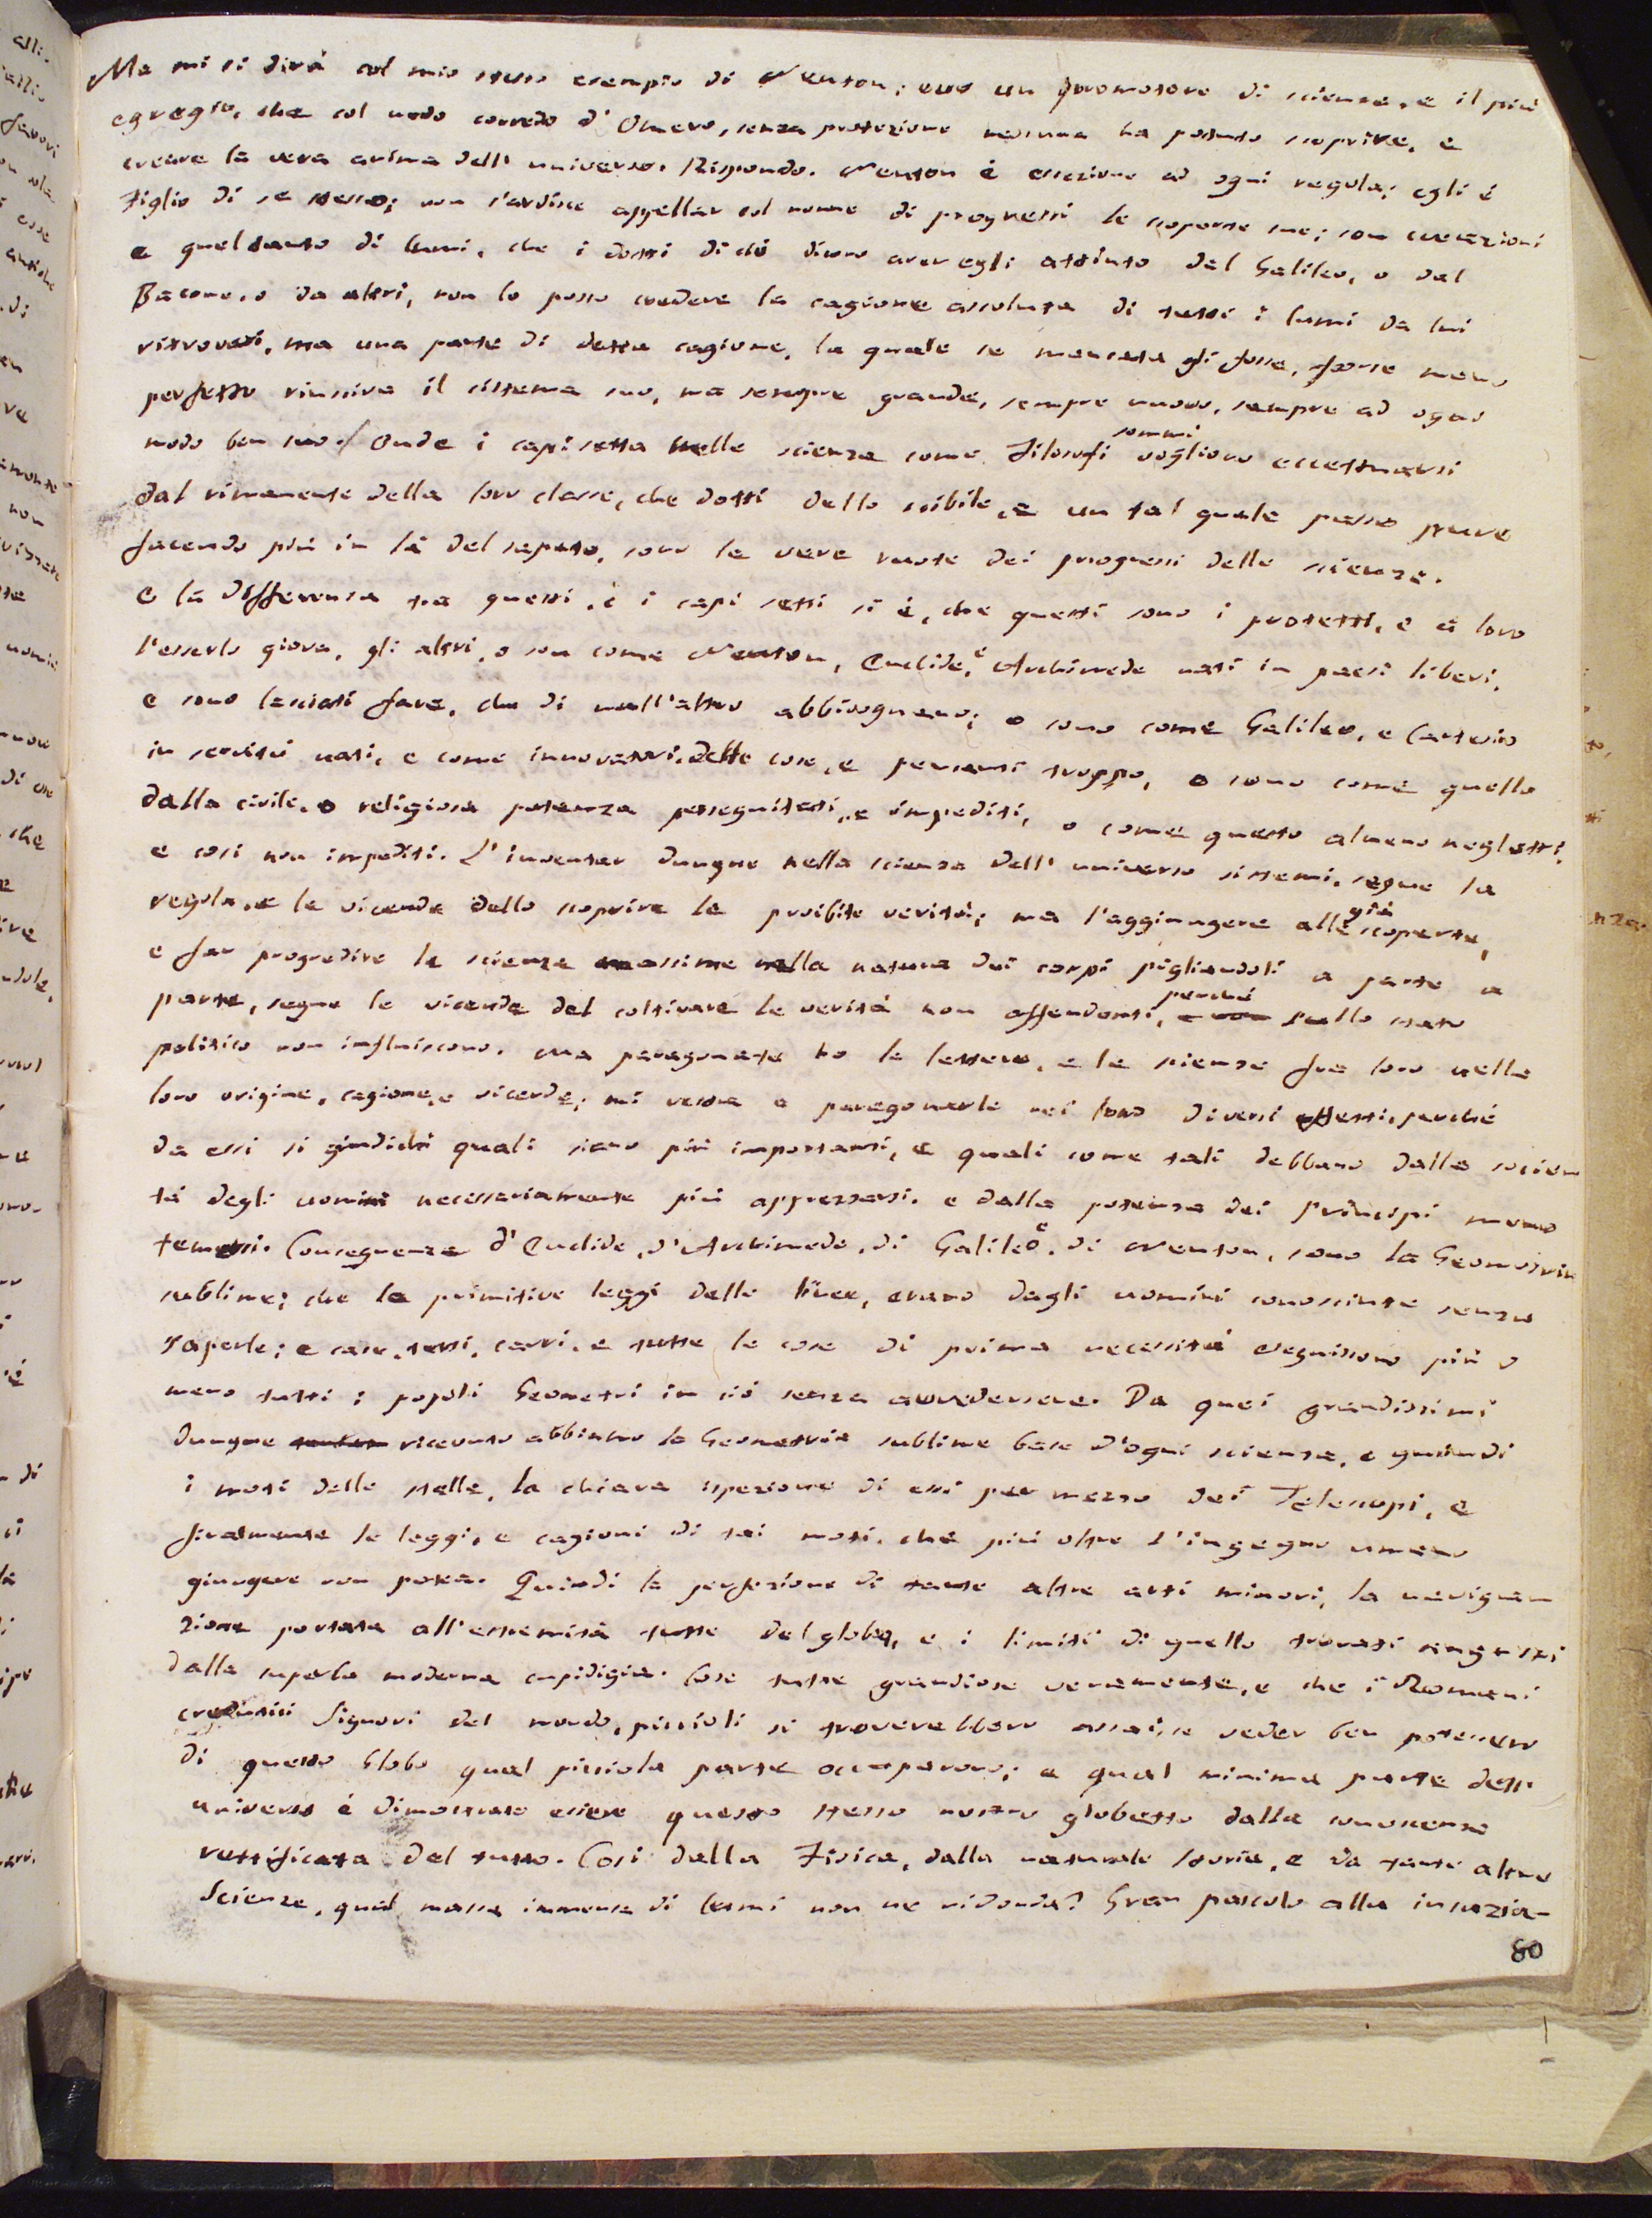 Ma mi si dirà col mio stesso esempio di Newton; ecco un promotore di scienze, e il più
egregio, che col nudo corredo d'Omero, senza protezione nessuna ha potuto scoprire, e
creare la vera anima dell'universo. Rispondo. Newton è eccezione ad ogni regola; egli è
Figlio di se stesso; non s'ardisce appellar col nome di progressi le scoperte sue; son creazioni
e quel tanto di lumi, che i dotti di ciò dicono aver egli attinto dal Galileo, o dal
Bacone, o da altri, non lo posso credere la cagione assoluta di tutti i lumi da lui
ritrovati, ma una parte di detta cagione, la quale se mancata gli fosse, forse meno
perfetto riusciva il sistema suo, ma sempre grande, sempre nuovo, sempre ad ogni
modo ben suo. Onde i capi setta nelle scienze come sommi Filosofi vogliono eccettuarsi
dal rimanente della loro classe, che dotti dello scibile, e un tal quale passo pure
facendo più in là del saputo, sono le vere ruote dei progressi delle scienze.
E la differenza tra questi, e i capi setti si è, che questi sono i protetti, e a loro
l'esserlo giova, gli altri, o son come Newton, Euclide, e Archimede nati in paesi liberi,
e sono lasciati fare, che di null'altro abbisognano; o sono come Galileo, e Cartesio
in servitù nati, e come innovatori delle cose, e pensanti troppo, o sono come quello
dalla civile, o religiosa potenza perseguitati, e impediti, o come questo almeno negletti,
e così non impediti. L'inventar dunque nella scienza dell'universo sistemi, segue la
regola, e le vicende dello scoprire le proibite verità; ma l'aggiungere alle già scoperte,
e far progredire le scienze massime nella natura dei corpi pigliandoli a parte a
parte, segue le vicende del coltivare le verità non offendenti, perchè sullo stato
politico non influiscono. Ma paragonate ho le lettere, e le scienze fra loro nelle
loro origine, cagione, e vicende; mi resta a paragonarle nei loro diversi effetti, perchè
da essi si giudichi quali siano più importanti, e quali come tali debbano dalla socie=
tà degli uomini necessariamente più apprezzarsi, e dalla potenza dei Principi meno
temersi. Conseguenze d'Euclide, d'Archimede, di Galileo, e di Newton, sono la Geometria
sublime; che le primitive leggi delle linee, erano dagli uomini conosciute senza
saperle; e case, tetti, carri, e tutte le cose di prima necessità eseguiscono più o
meno tutti i popoli Geometri in ciò senza avvedersene. Da quei grandissimi
dunque ricevuto abbiamo la Geometria sublime base d'ogni scienza, e quindi
i moti delle stelle, la chiara ispezione di essi per mezzo dei Telescopi, e
finalmente le leggi, e cagioni di tai moti, che più oltre l'ingegno umano
giungere non potea. Quindi la perfezione di tante altre arti minori, la naviga=
zione portata all'estremità tutte del globo, e i limiti di quello trovati angusti
dalla superba moderna cupidigia. Cose tutte grandiose veramente, e che i Romani
credutisi Signori del mondo, piccioli si troverebbero assai, se veder ben potessero
di questo Globo qual picciola parte occuparono; e qual minima parte dell'
universo è dimostrato essere questo stesso nostro globetto dalla conoscenza
rettificata del tutto. Così dalla Fisica, dalla naturale storia, e da tante altre
Scienze, qual massa immensa di lumi non ne ridonda? Gran pascolo alla insazia-
80